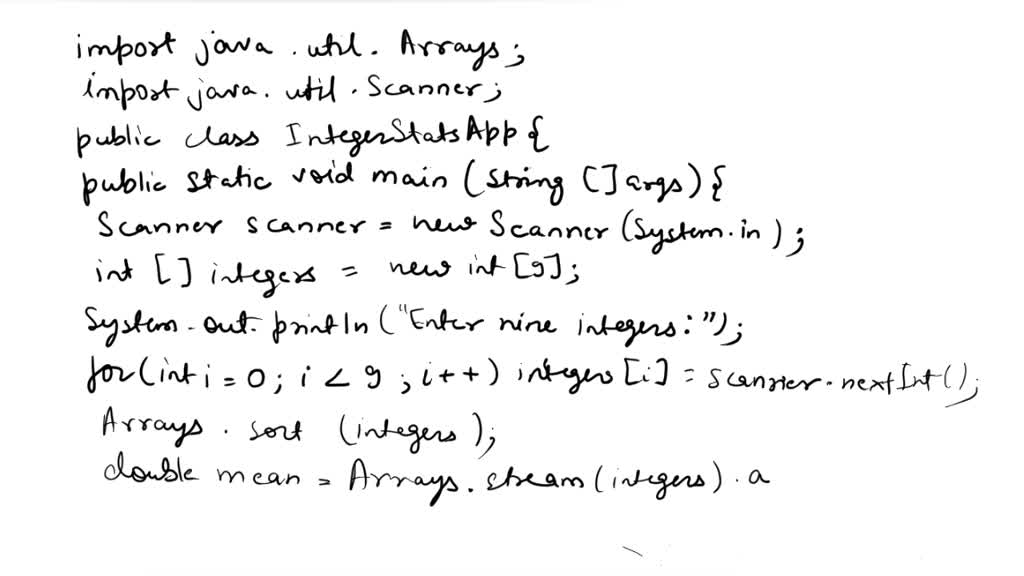 import java.util.Arrays;
import java.util.Scanner;
public class IntegerStatsApp{
public static void main (String []args){
Scanner scanner = new Scanner (System.in);
int [] integers = new int [9];
System.out.println ("Enter nine integers:");
for(int i = 0; i < 9; i++) integers [i] = scanner.nextInt();
Arrays.sort (integers);
double mean = Arrays.stream (integers).a